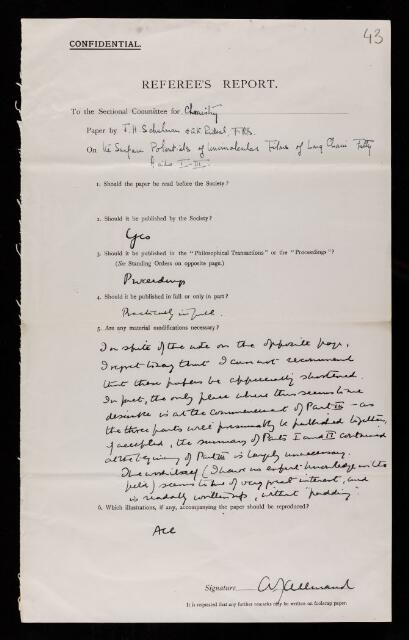 43
CONFIDENTIAL.
REFEREE'S REPORT.
To the Sectional Committee for Chemistry
Paper by J. H. Schulman & E. K. Rideal, F.R.S.
On the Surface Potentials of Unimolecular Films of Long Chain Fatty
Acids I–III.
1. Should the paper be read before the Society?
2. Should it be published by the Society?
Yes
3. Should it be published in the "Philosophical Transactions" or the "Proceedings"?
(See Standing Orders on opposite page.)
Proceedings
4. Should it be published in full or only in part?
Practically in full.
5. Are any material modifications necessary?
In spite of the note on the opposite page,
I regret to say that I can not recommend
that these papers be appreciably shortened.
In fact, the only place where this seems to me
desirable is at the commencement of Part III – as
the three parts will presumably be published together,
if accepted, the summary of Parts I and II contained
at the beginning of Part III is largely unnecessary.
The work itself (I have no expert knowledge in the
field) seems to be of very great interest, and
is readably written up, without "padding".
6. Which illustrations, if any, accompanying the paper should be reproduced?
All
Signature A J Allmand
It is requested that any further remarks may be written on foolscap paper.